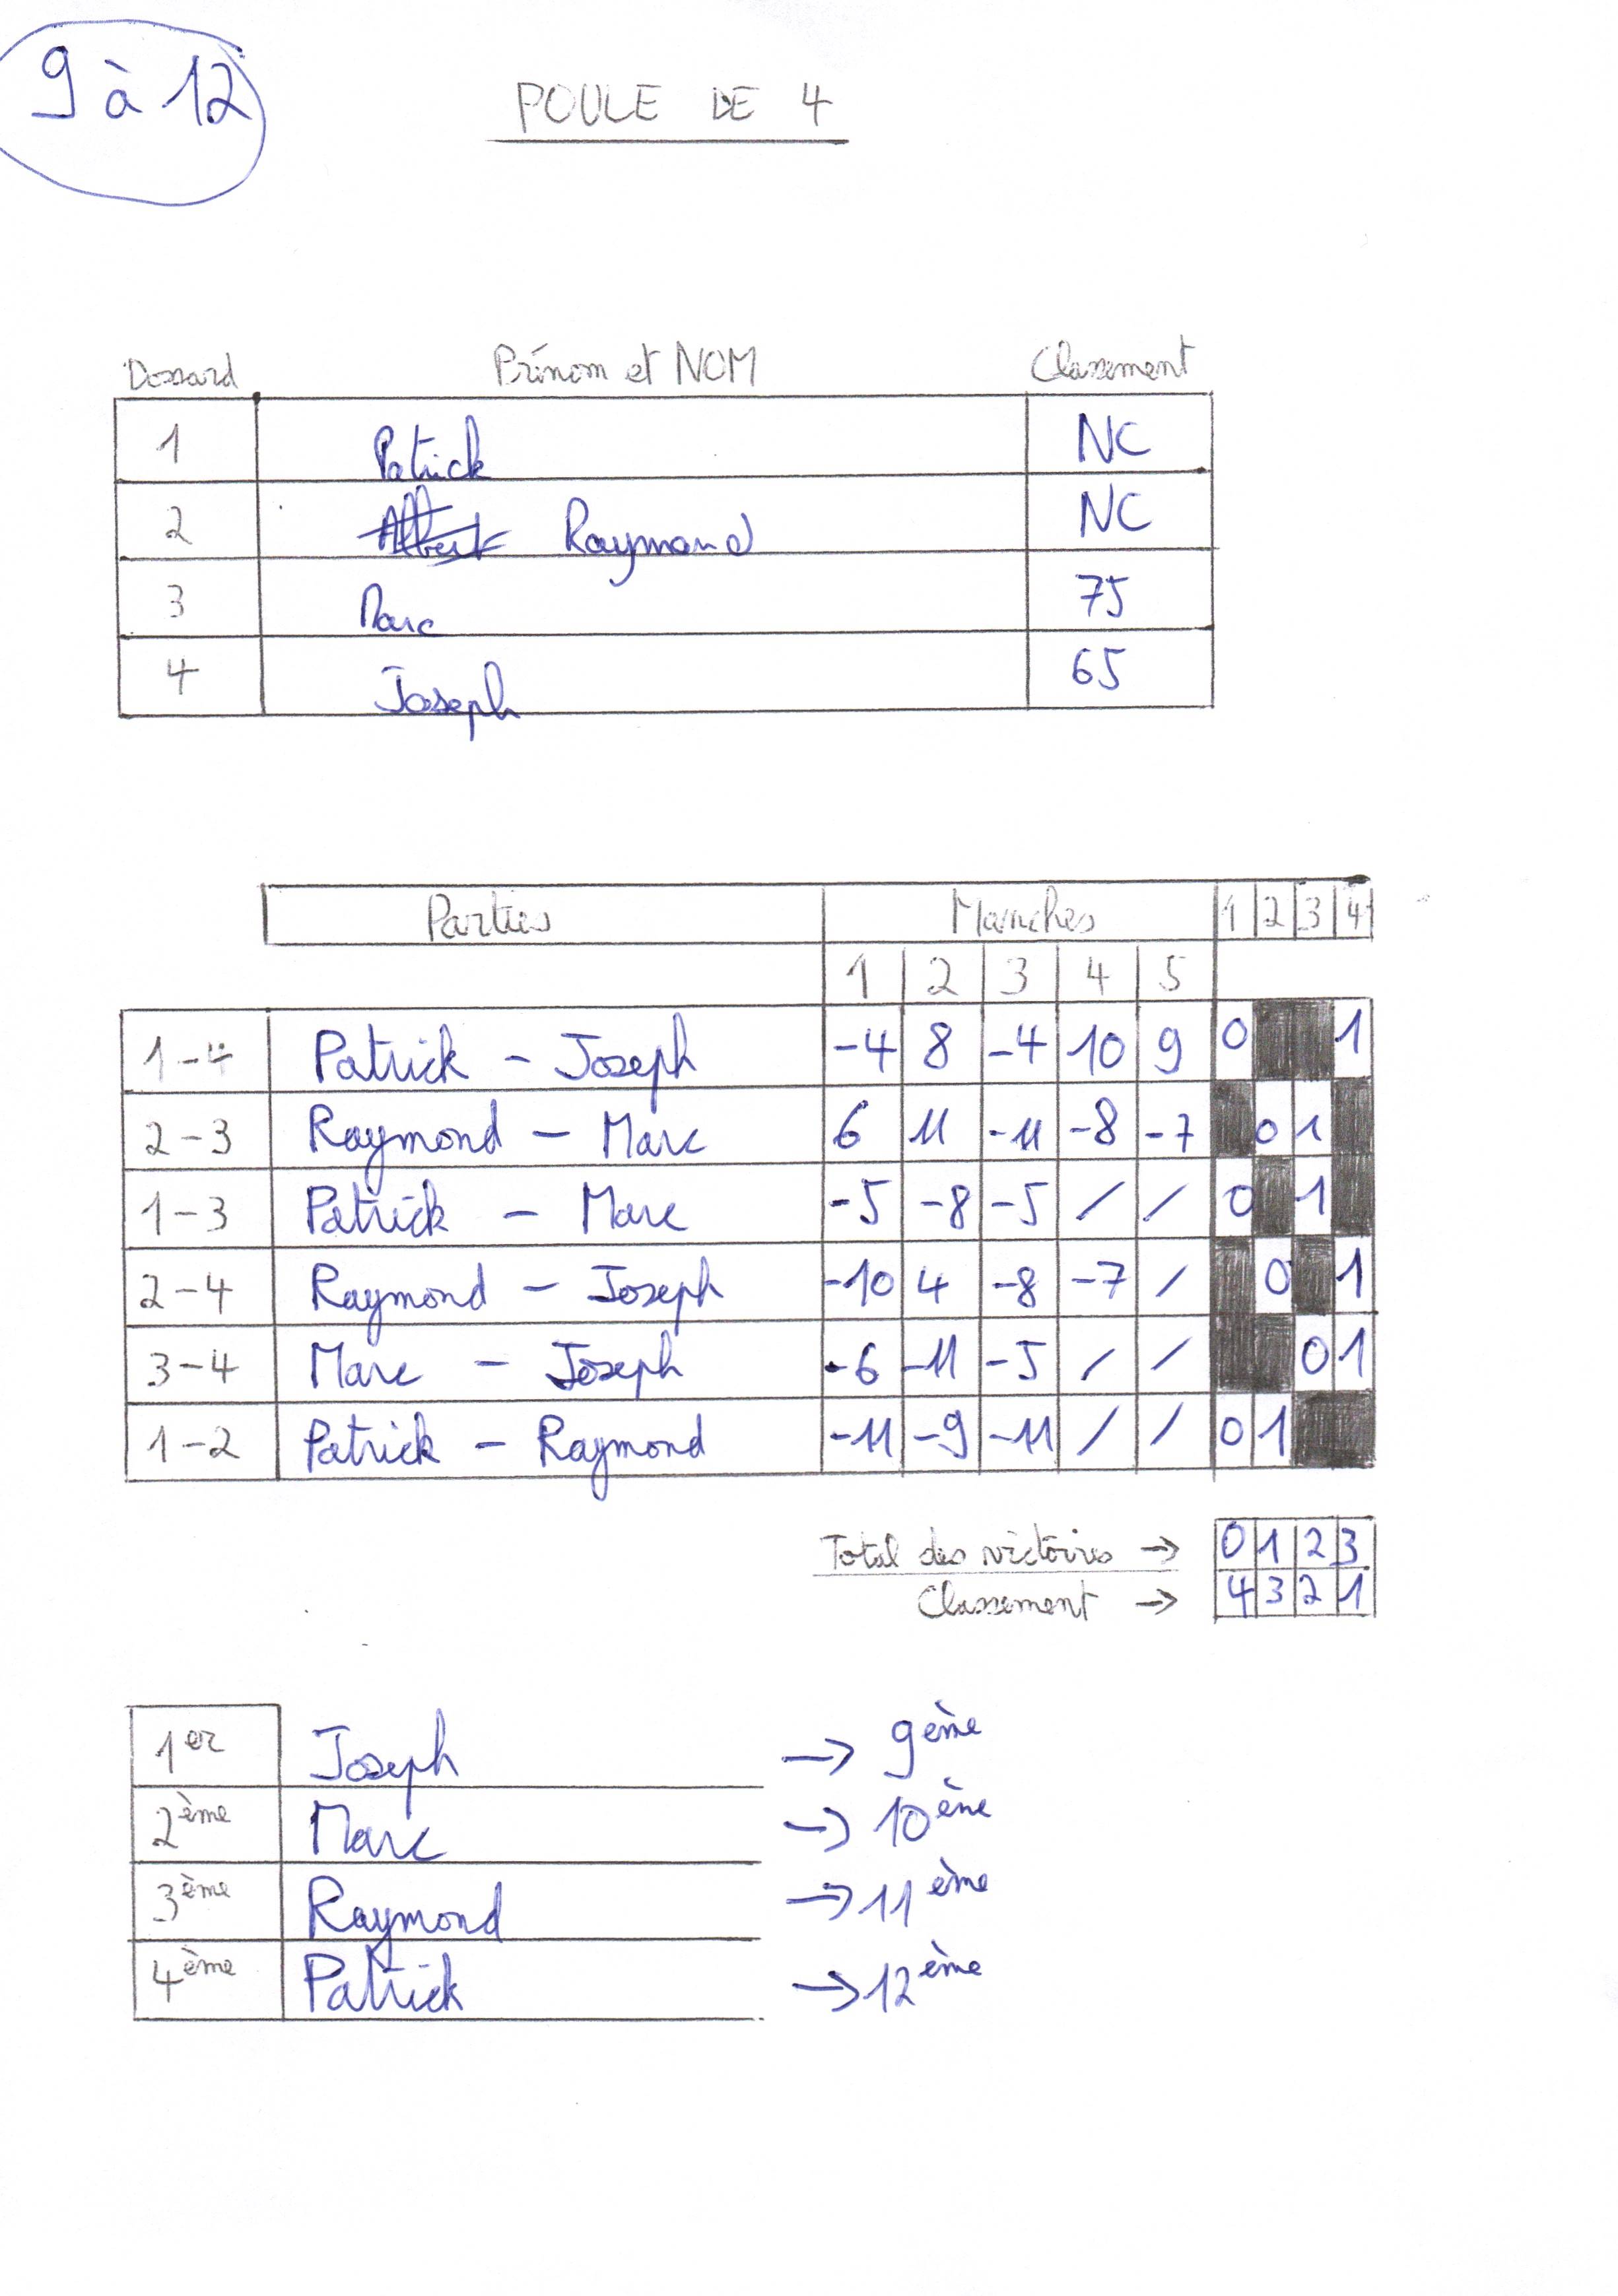 9 à 12
POULE DE 4
Dossard Prénom et NOM Classement
1 Patrick NC
2 Albert Raymond NC
3 Marc 75
4 Joseph 65
Parties Manches 1 2 3 4
1 2 3 4 5
1-4 Patrick - Joseph -4 8 -4 10 9 0 1
2-3 Raymond - Marc 6 11 -11 -8 -7 0 1
1-3 Patrick - Marc -5 -8 -5 / / 0 1
2-4 Raymond - Joseph -10 4 -8 -7 / 0 1
3-4 Marc - Joseph -6 -11 -5 / / 0 1
1-2 Patrick - Raymond -11 -9 -11 / / 0 1
Total des victoires → 0 1 2 3
Classement → 4 3 2 1
1er Joseph → 9ème
2ème Marc → 10ème
3ème Raymond → 11ème
4ème Patrick → 12ème